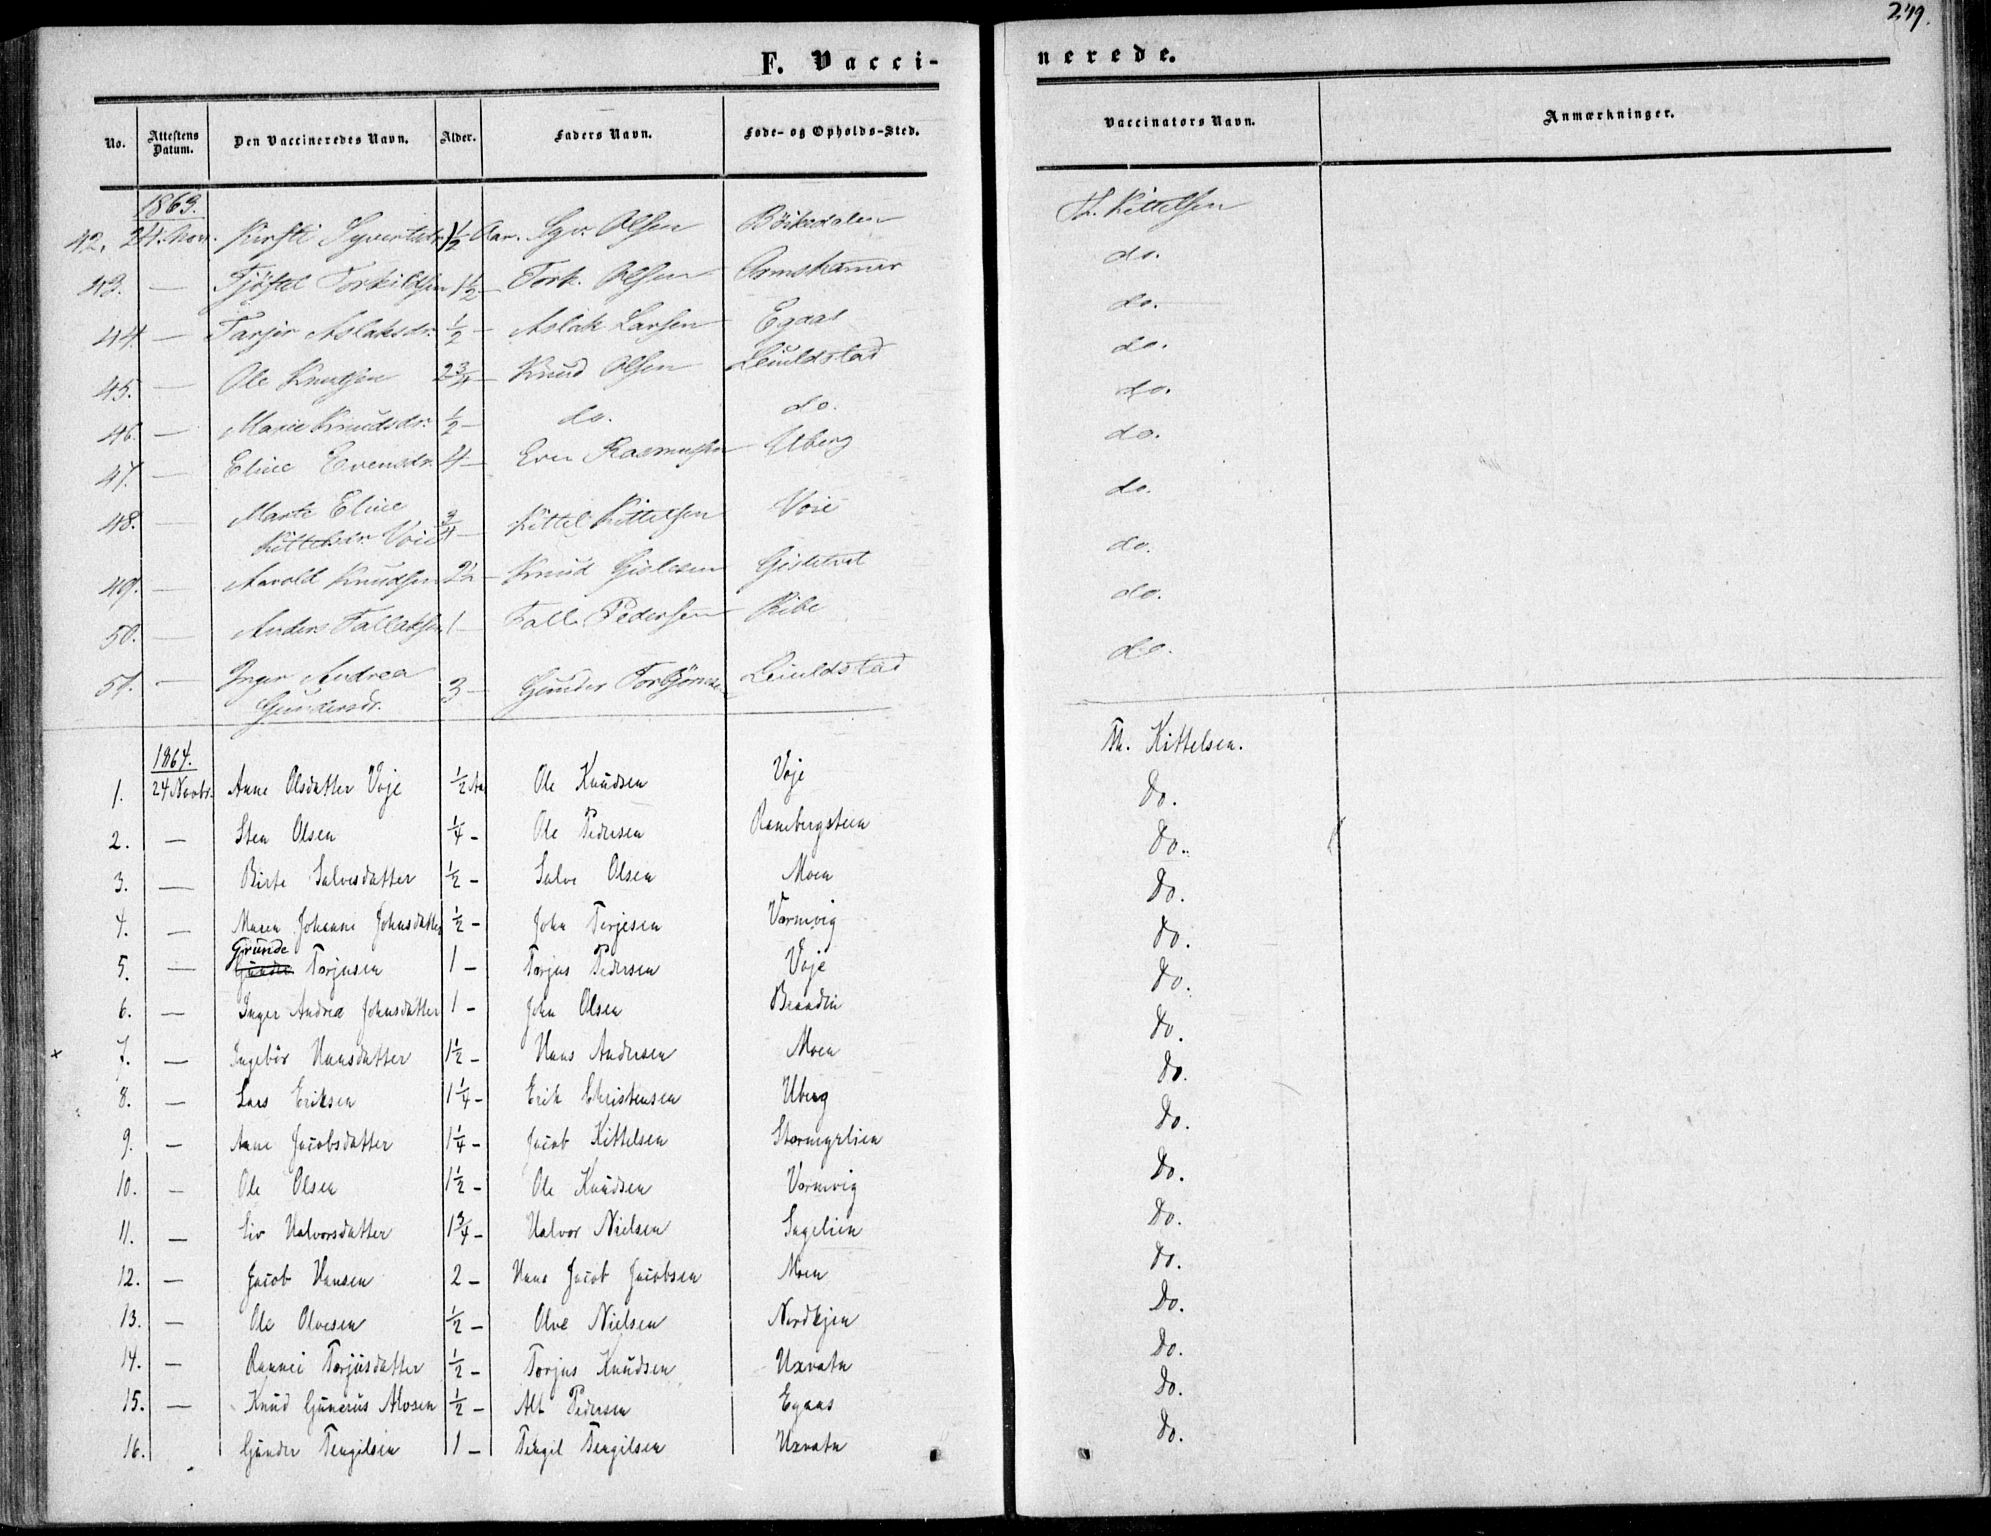 249.
F. Vaccinerede.
No. Attestens Datum. Den Vaccineredes Navn. Alder. Faders Navn. Føde- og Opholds-Sted. Vaccinators Navn. Anmærkninger.
1863.
42. 24. Nov. Kirsti Syvertsdr. 1½ Aar. Syv. Olsen Th. Kittelsen
43. — Tjøstel Torkildsen 1½ — Tork. Olsen do.
44. — Tarjer Aslaksdr. ½ — Aslak Larsen Egaas do.
45. — Ole Knutsen 2¾ — Knud Olsen Leuldstad do.
46. — Marie Knudsdr. ½ — do. do. do.
47. — Eline Evensdr. 4 — Even Rasmussen Uberg do.
48. — Marte Eline
Kittelsdr. Voie ¾ — Kittel Kittelsen Voie do.
49. — Aavold Knudsen 2½ — Knud Gislesen do.
50. — Anders Tallaksen 1 — Tall. Pedersen Ribe do.
51. — Inger Andrea
Gundersdr. 3 — Gunder Torbjørns. Leuldstad do.
1864.
1. 24 Novbr. Anne Olsdatter Voje ½ Aar Ole Knudsen Voje Th. Kittelsen.
2. — Sten Olsen ¼ — Ole Pedersen Ramebergsteen Do.
3. — Birte Salvesdatter ½ — Salve Olsen Moen Do.
4. — Maren Johanne Johnsdatter ½ — John Terjesen Vormvig Do.
Grunde
5. — Gunder Torjusen 1 — Torjus Pedersen Voje Do.
6. — Inger Andrea Johnsdatter 1 — John Olsen Do.
7. — Ingebôr Hansdatter 1½ — Hans Andersen Moen Do.
8. — Lars Eriksen 1¼ — Erik Christensen Uberg Do.
9. — Anne Jacobsdatter 1¼ — Jacob Kittelsen Stormyrlien Do.
10. — Ole Olsen 1½ — Ole Knudsen Vormvig Do.
11. — Liv Halvorsdatter 1¾ — Halvor Nielsen Ingelien Do.
12. — Jacob Hansen 2 — Hans Jacob Jacobsen Moen Do.
13. — Ole Olvesen ½ — Olve Nielsen Nordkjen Do.
14. — Rannei Torjusdatter ½ — Torjus Knudsen Uxvatn Do.
15. — Knud Gunerus Alvsen ½ — Alt Pedersen Egaas Do.
16. Gunder Tengilsen 1 — Tengil Tengilsen Uxvatn Do.